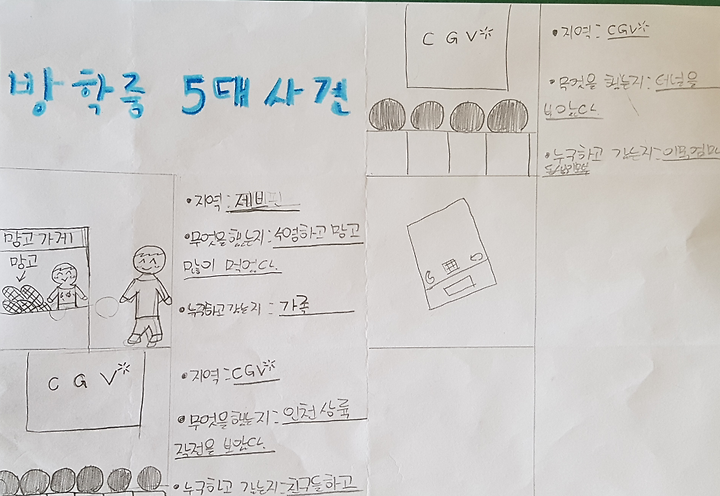 방학중 5대사건
망고가게
망고
• 지역 : 제비
• 무엇을했는지 : 수영하고 망고
많이 먹었다.
• 누구하고갔는지 : 가족
CGV
• 지역 : CGV
• 무엇을했는지 : 인천상륙
작전을 보았다.
• 누구하고 갔는지 : 친구들하고
CGV
• 지역 : CGV
• 무엇을 했는지 : 터널을
보았다.
• 누구하고 갔는지 :